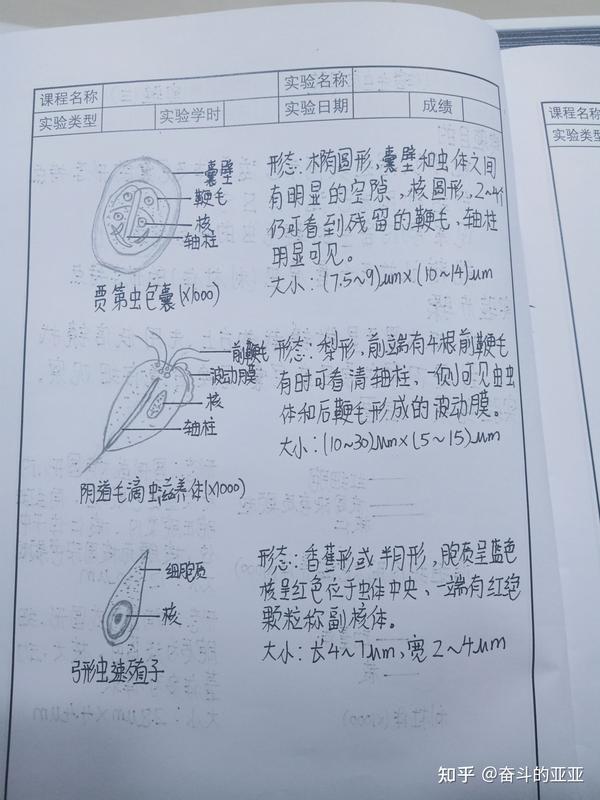 课程名称
实验名称
实验类型
实验学时
实验日期
成绩
课程名称
实验类型
囊壁
鞭毛
核
轴柱
贾第虫包囊(×1000)
形态：椭圆形，囊壁和虫体之间
有明显的空隙，核圆形，2~4个
仍可看到残留的鞭毛、轴柱
明显可见。
大小：(7.5~9)μm×(10~14)μm
前鞭毛
波动膜
核
轴柱
阴道毛滴虫滋养体(×1000)
形态：梨形，前端有4根前鞭毛
有时可看清轴柱、一侧可见由虫
体和后鞭毛形成的波动膜。
大小：(10~30)μm×(5~15)μm
细胞质
核
弓形虫速殖子
形态：香蕉形或半月形，胞质呈蓝色
核呈红色位于虫体中央、一端有红绝
颗粒称副核体。
大小：长4~7μm、宽2~4μm
知乎 @奋斗的亚亚